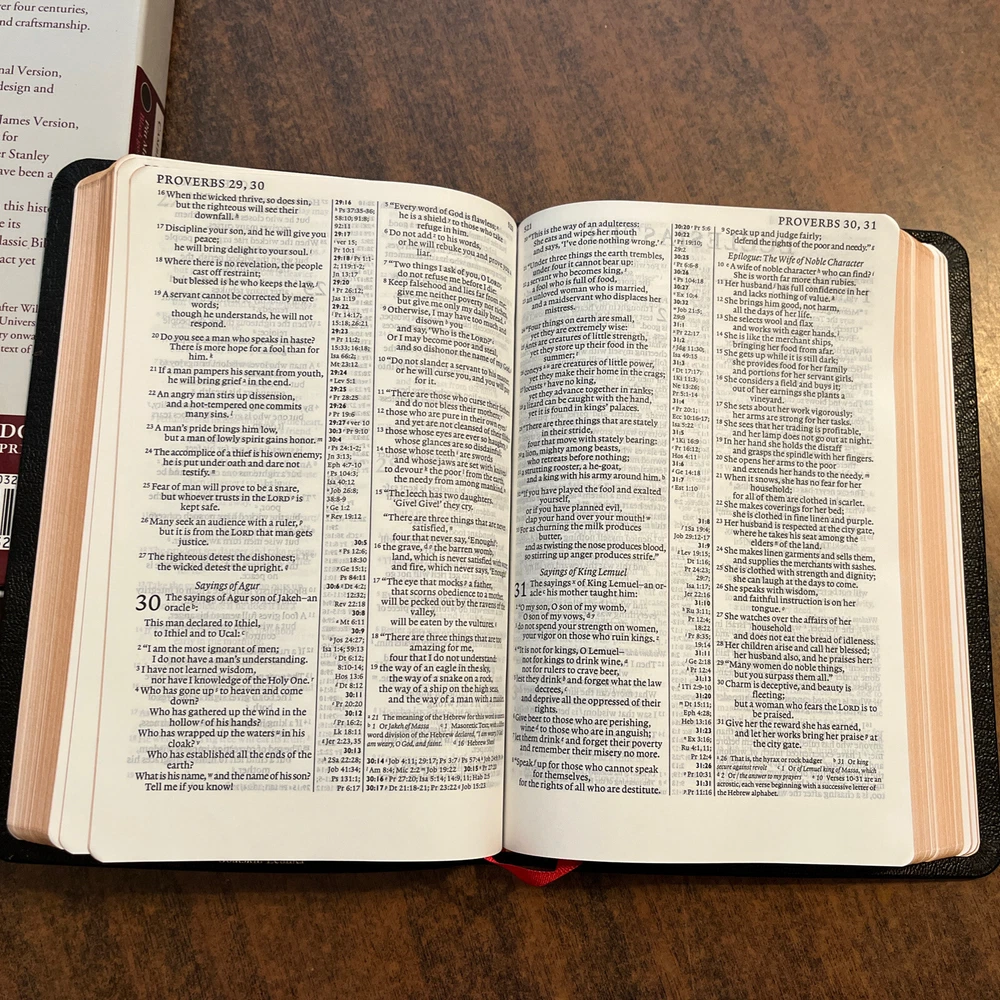 er four centuries,
nd craftsmanship.
nal Version,
design and
James Version,
for
er Stanley
ave been a
this hist
e its
lassic Bib
act yet
after Wil
Univers
ry onwa
text of
PROVERBS 29, 30
16 When the wicked thrive, so does sin,
but the righteous will see their
downfall.
17 Discipline your son, and he will give you
peace;
he will bring delight to your soul.
18 Where there is no revelation, the people
cast off restraint;
but blessed is he who keeps the law.
19 A servant cannot be corrected by mere
words;
though he understands, he will not
respond.
20 Do you see a man who speaks in haste?
There is more hope for a fool than for
him.
21 If a man pampers his servant from youth,
he will bring grief in the end.
22 An angry man stirs up dissension,
and a hot-tempered one commits
many sins.
23 A man's pride brings him low,
but a man of lowly spirit gains honor.
24 The accomplice of a thief is his own enemy;
he is put under oath and dare not
testify.
25 Fear of man will prove to be a snare,
but whoever trusts in the LORD is
kept safe.
26 Many seek an audience with a ruler,
but it is from the LORD that man gets
justice.
27 The righteous detest the dishonest;
the wicked detest the upright.
Sayings of Agur
30 The sayings of Agur son of Jakeh—an
oracle:
This man declared to Ithiel,
to Ithiel and to Ucal:
2 "I am the most ignorant of men;
I do not have a man's understanding.
3 I have not learned wisdom,
nor have I knowledge of the Holy One.
4 Who has gone up to heaven and come
down?
Who has gathered up the wind in the
hollow of his hands?
Who has wrapped up the waters in his
cloak?
Who has established all the ends of the
earth?
What is his name, and the name of his son?
Tell me if you know!
29:16
Ps 37:35-36;
58:10; 91:8;
92:11
29:17
ver 15;
Pr 10:1
29:18 Ps 1:1-
2; 119:1-2;
Jn 13:17
29:20
Pr 26:12;
Jas 1:19
29:22
Pr 14:17;
15:18; 26:21
29:23
Pr 11:2;
15:33; 16:18;
Isa 66:2;
Mt 23:12
29:24
Lev 5:1
29:25
Pr 28:25
29:26
Pr 19:6
29:27 ver 10
30:3 Pr 9:10
30:4
Ps 24:1-2;
Jn 3:13;
Eph 4:7-10
Ps 104:3;
Isa 40:12
Job 26:8;
38:8-9
Ge 1:2
Rev 19:12
30:5
Ps 12:6;
18:30
Ge 15:1;
Ps 84:11
30:6 Dt 4:2;
12:32;
Rev 22:18
30:8
Mt 6:11
30:9
Jos 24:27;
Isa 1:4; 59:13
Dt 6:12;
8:10-14;
Hos 13:6
Dt 8:12
30:11
Pr 20:20
30:12
Pr 16:2;
Lk 18:11
Jer 2:23, 35
30:13
2Sa 22:28;
Job 41:34;
Ps 131:1;
Pr 6:17
5 "Every word of God is flawless;
he is a shield to those who take
refuge in him.
6 Do not add to his words,
or he will rebuke you and prove you a
liar.
7 "Two things I ask of you, O LORD;
do not refuse me before I die:
8 Keep falsehood and lies far from me;
give me neither poverty nor riches,
but give me only my daily bread.
9 Otherwise, I may have too much and
disown you
and say, 'Who is the LORD?'
Or I may become poor and steal,
and so dishonor the name of my God.
10 "Do not slander a servant to his master,
or he will curse you, and you will pay
for it.
11 "There are those who curse their fathers
and do not bless their mothers;
12 those who are pure in their own eyes
and yet are not cleansed of their filth;
13 those whose eyes are ever so haughty,
whose glances are so disdainful;
14 those whose teeth are swords
and whose jaws are set with knives
to devour the poor from the earth,
the needy from among mankind.
15 "The leech has two daughters.
'Give! Give!' they cry.
"There are three things that are never
satisfied,
four that never say, 'Enough!':
16 the grave, the barren womb,
land, which is never satisfied with water,
and fire, which never says, 'Enough!'
17 "The eye that mocks a father,
that scorns obedience to a mother,
will be pecked out by the ravens of the
valley,
will be eaten by the vultures.
18 "There are three things that are too
amazing for me,
four that I do not understand:
19 the way of an eagle in the sky,
the way of a snake on a rock,
the way of a ship on the high seas,
and the way of a man with a maiden.
21 The meaning of the Hebrew for this word is uncertain.
1 Or Jakeh of Massa 1 Masoretic Text; with a different
word division of the Hebrew declared, "I am weary, O God;
am weary, O God, and faint. 16 Hebrew Sheol
30:14 Job 4:11; 29:17; Ps 3:7 Ps 57:4 Job 24:9;
Am 8:4; Mic 2:2 Job 19:22 30:15 Pr 27:20
30:16 Pr 27:20; Isa 5:14; 14:9, 11; Hab 2:5
30:17 Dt 21:18-21; Pr 23:22 Job 15:23
521
PROVERBS 30, 31
20 "This is the way of an adulteress:
She eats and wipes her mouth
and says, 'I've done nothing wrong.'
21 "Under three things the earth trembles,
under four it cannot bear up:
22 a servant who becomes king,
a fool who is full of food,
23 an unloved woman who is married,
and a maidservant who displaces her
mistress.
24 "Four things on earth are small,
yet they are extremely wise:
25 Ants are creatures of little strength,
yet they store up their food in the
summer;
26 coneys are creatures of little power,
yet they make their home in the crags;
27 locusts have no king,
yet they advance together in ranks;
28 a lizard can be caught with the hand,
yet it is found in kings' palaces.
29 "There are three things that are stately
in their stride,
four that move with stately bearing:
30 a lion, mighty among beasts,
who retreats before nothing;
31 a strutting rooster, a he-goat,
and a king with his army around him.
32 "If you have played the fool and exalted
yourself,
or if you have planned evil,
clap your hand over your mouth!
33 For as churning the milk produces
butter,
and as twisting the nose produces blood,
so stirring up anger produces strife."
Sayings of King Lemuel
31 The sayings of King Lemuel—an or-
acle his mother taught him:
2 "O my son, O son of my womb,
O son of my vows,
3 do not spend your strength on women,
your vigor on those who ruin kings.
4 "It is not for kings, O Lemuel—
not for kings to drink wine,
not for rulers to crave beer,
5 lest they drink and forget what the law
decrees,
and deprive all the oppressed of their
rights.
6 Give beer to those who are perishing,
wine to those who are in anguish;
7 let them drink and forget their poverty
and remember their misery no more.
8 "Speak up for those who cannot speak
for themselves,
for the rights of all who are destitute.
30:20 Pr 5:6
30:22
Pr 19:10;
29:2
30:25
Pr 6:6-8
30:26
Ps 104:18
30:27
Ex 10:4
30:32
Job 21:5;
29:9
31:1
Pr 22:17
31:2
Jdg 11:30;
Isa 49:15
31:3
Dt 17:17;
1Ki 11:3;
Ne 13:26;
Pr 5:1-14
31:4
Pr 20:1;
Ecc 10:16-17;
Isa 5:22
31:5
1Ki 16:9
Pr 16:12;
Hos 4:11
31:6
Ge 14:18
31:7
Est 1:10
31:8
1Sa 19:4;
Job 29:12-17
31:9
Lev 19:15;
Dt 1:16;
Pr 24:23;
29:7;
Isa 1:17;
Jer 22:16
31:10
Ru 3:11;
Pr 12:4;
18:22
Pr 8:35;
19:14
31:11
Ge 2:18
Pr 12:4
31:13
1Ti 2:9-10
31:20
Dt 15:11;
Eph 4:28;
Heb 13:16
31:23
Ex 3:16;
Ru 4:1, 11;
Pr 12:4
31:26
Pr 10:31
31:31
Pr 11:16
9 Speak up and judge fairly;
defend the rights of the poor and needy."
Epilogue: The Wife of Noble Character
10 A wife of noble character who can find?
She is worth far more than rubies.
11 Her husband has full confidence in her
and lacks nothing of value.
12 She brings him good, not harm,
all the days of her life.
13 She selects wool and flax
and works with eager hands.
14 She is like the merchant ships,
bringing her food from afar.
15 She gets up while it is still dark;
she provides food for her family
and portions for her servant girls.
16 She considers a field and buys it;
out of her earnings she plants a
vineyard.
17 She sets about her work vigorously;
her arms are strong for her tasks.
18 She sees that her trading is profitable,
and her lamp does not go out at night.
19 In her hand she holds the distaff
and grasps the spindle with her fingers.
20 She opens her arms to the poor
and extends her hands to the needy.
21 When it snows, she has no fear for her
household;
for all of them are clothed in scarlet.
22 She makes coverings for her bed;
she is clothed in fine linen and purple.
23 Her husband is respected at the city gate,
where he takes his seat among the
elders of the land.
24 She makes linen garments and sells them,
and supplies the merchants with sashes.
25 She is clothed with strength and dignity;
she can laugh at the days to come.
26 She speaks with wisdom,
and faithful instruction is on her
tongue.
27 She watches over the affairs of her
household
and does not eat the bread of idleness.
28 Her children arise and call her blessed;
her husband also, and he praises her:
29 "Many women do noble things,
but you surpass them all."
30 Charm is deceptive, and beauty is
fleeting;
but a woman who fears the LORD is to
be praised.
31 Give her the reward she has earned,
and let her works bring her praise at
the city gate.
26 That is, the hyrax or rock badger 31 Or king
secure against revolt 1 Or of Lemuel king of Massa, which
2 Or / the answer to my prayers 10 Verses 10-31 are an
acrostic, each verse beginning with a successive letter of
the Hebrew alphabet.